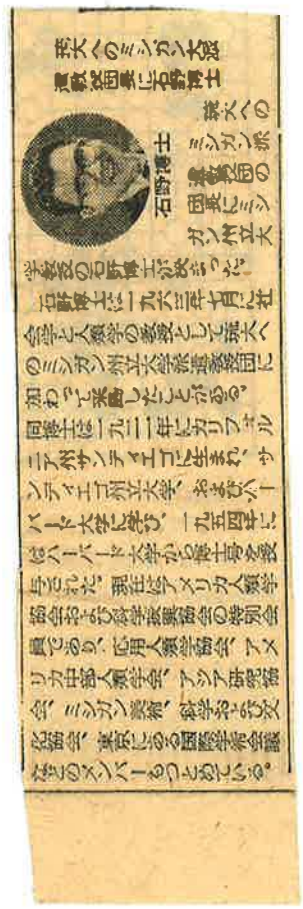 琉大へのミシガン大派
遣教授団長に石野博士
石野博士
琉大への
ミシガン派
遣教授団の
団長にミシ
ガン州立大
学教授の石野博士が決まつた。
石野博士は一九六二年七月に社
会学と人類学の教授として琉大へ
のミシガン州立大学派遣教授団に
加わつて来島したことがある。
同博士は一九二一年にカリフォル
ニア州サンディエゴに生まれ、サ
ンディエゴ州立大学、およびハー
バード大学に学び、一九五四年に
はハーバード大学から博士号を授
与された。現在はアメリカ人類学
協会および科学振興協会の特別会
員であり、応用人類学協会、アメ
リカ中部人類学会、アジア研究協
会、ミシガン美術、科学および文
化協会、東京にある国際学術会議
などのメンバーもつとめている。